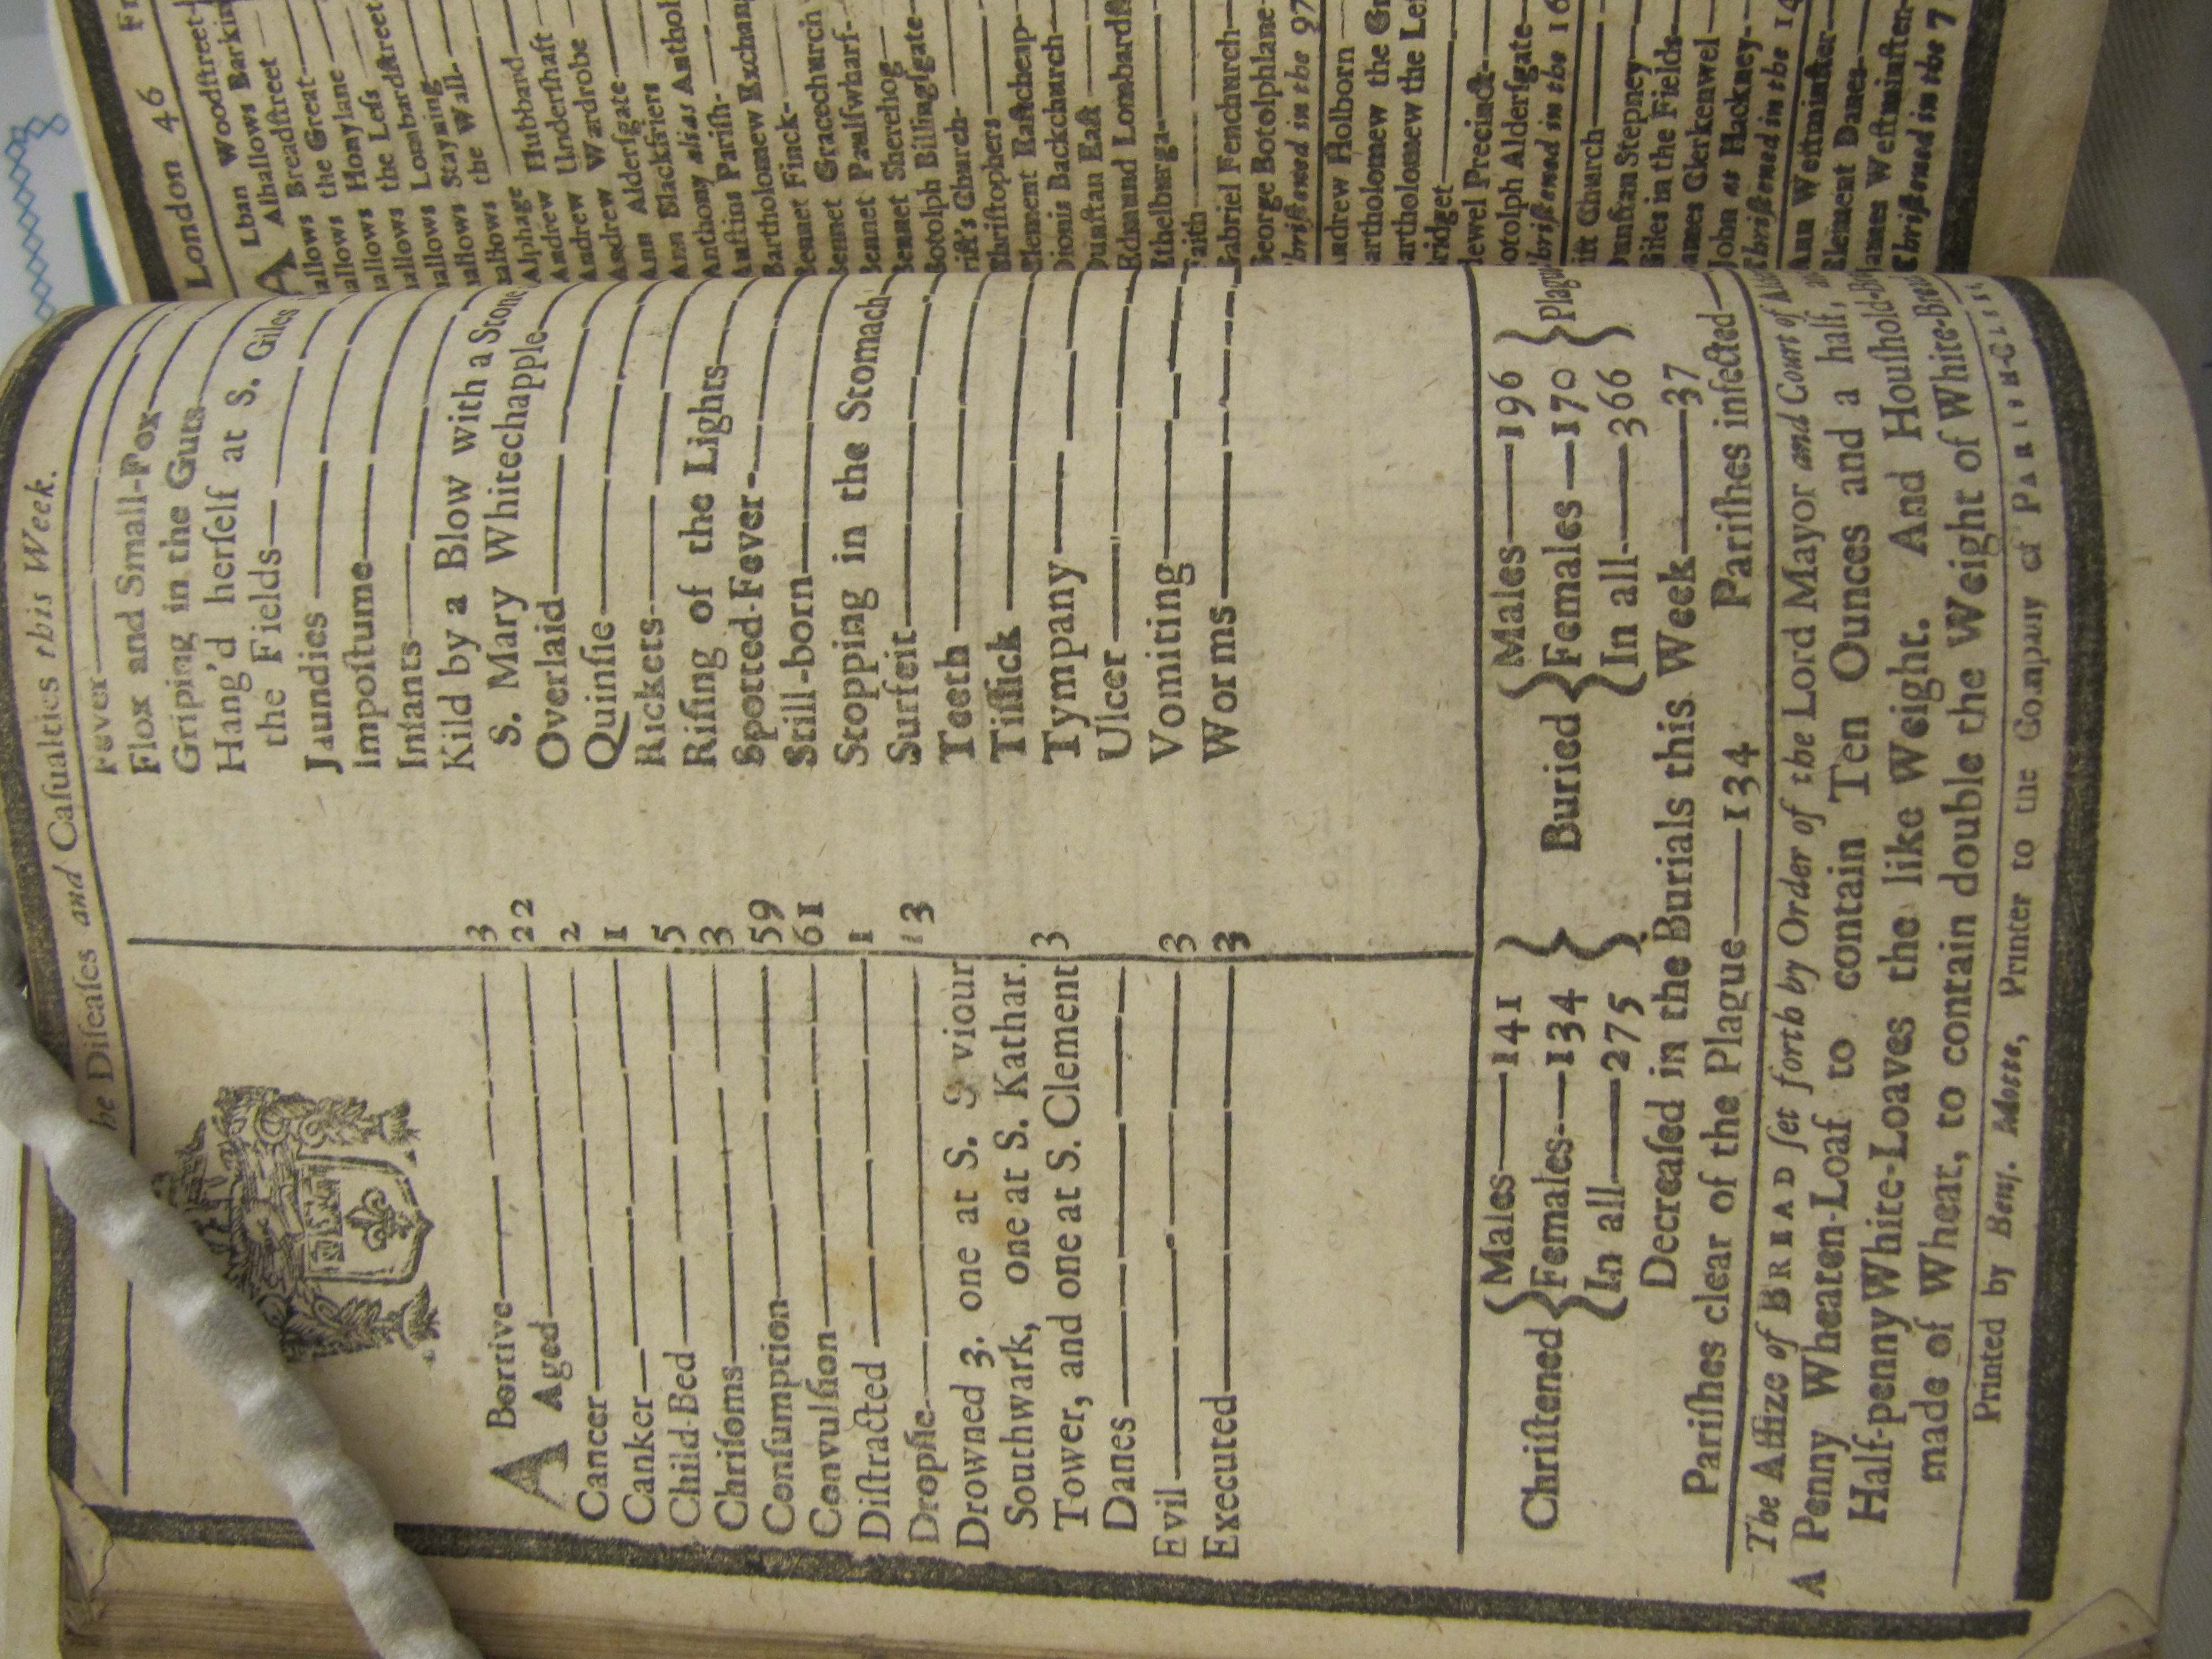 he Diſeaſes and Caſualties this Week.
A Bortive 3
Aged 22
Cancer 2
Canker 1
Child-Bed 5
Chriſoms 3
Conſumption 59
Convulſion 61
Diſtracted 1
Dropſie 13
Drowned 3. one at S. S viour
Southwark, one at S. Kathar.
Tower, and one at S. Clement
Danes 3
Evil 3
Executed 3
Fever
Flox and Small-Pox
Griping in the Guts
Hang'd herſelf at S. Giles
the Fields
Jaundies
Impoſtume
Infants
Kild by a Blow with a Stone
S. Mary Whitechapple
Overlaid
Quinſie
Rickets
Riſing of the Lights
Spotted-Fever
Still-born
Stopping in the Stomach
Surfeit
Teeth
Tiſſick
Tympany
Ulcer
Vomiting
Worms
Chriſtened { Males 141
Females 134
In all 275 }
Buried { Males 196
Females 170
In all 366 } Plague
Decreaſed in the Burials this Week 37
Pariſhes clear of the Plague 134 Pariſhes infected
The Aſſize of BREAD ſet forth by Order of the Lord Mayor and Court of
A Penny Wheaten-Loaf to contain Ten Ounces and a half,
Half-penny White-Loaves the like Weight. And Houſhold-
made of Wheat, to contain double the Weight of White-
Printed by Benj. Motte, Printer to the Company of PARISH-CLE
London 46
A Lban Woodſtreet
Alhallows Barkin
allows Breadſtreet
allows the Great
allows Honylane
allows the Leſs
allows Lombardſtreet
allows Stayning
allows the Wall
Alphage
Andrew Hubbard
Andrew Underſhaft
Andrew Wardrobe
Ann Alderſgate
Ann Blackfriers
Anthony alias Anthol
Auſtins Pariſh
Bartholomew Exchan
Bennet Finck
Bennet Gracechurch
Bennet Paulſwharf
Bennet Sherehog
Botolph Billingſgate
riſt's Church
Chriſtophers
Clement Eaſtcheap
Dionis Backchurch
Dunſtan Eaſt
Edmund Lombardſ
Ethelburga
aith
Gabriel Fenchurch
George Botolphlane
hriſtened in the 97
Andrew Holborn
artholomew the Gr
artholomew the Leſ
ridget
dewel Precinct
otolph Alderſgate
hriſtened in the 16
iſt Church
Dunſtan Stepney
Giles in the Fields
ames Clerkenwel
John at Hackney
Chriſtened in the 14
Ann Weſtminſter
Clement Danes
ames Weſtminſter
Chriſtened in the 7